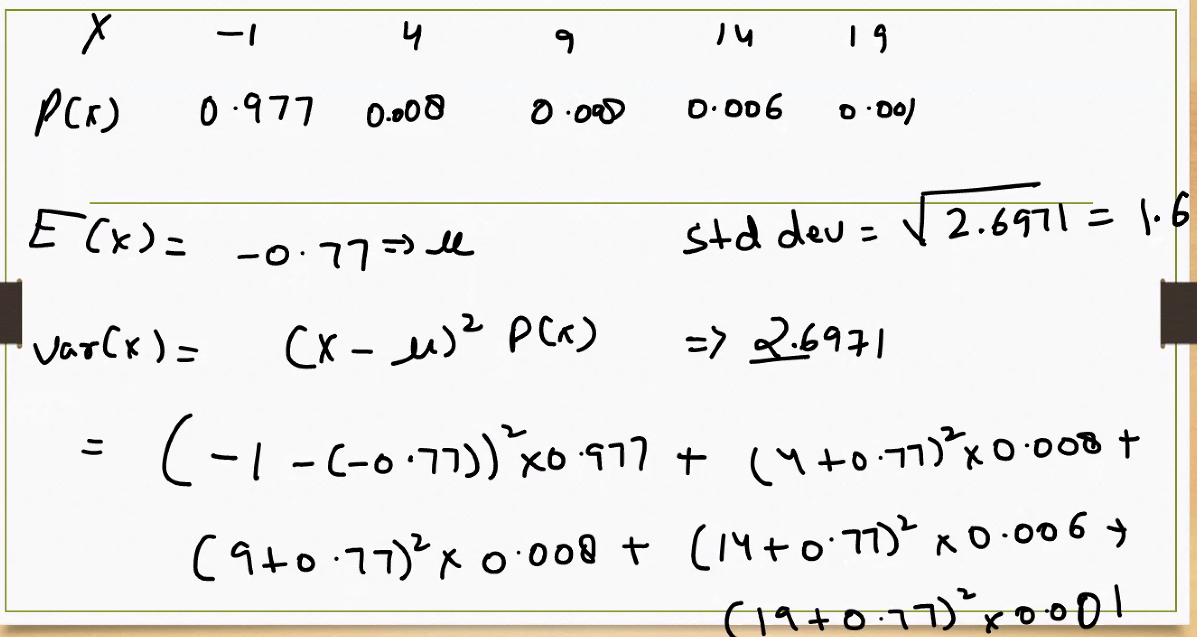 X -1 4 9 14 19
P(x) 0.977 0.008 0.008 0.006 0.001
E(x) = -0.77 => μ std dev = √2.6971 = 1.6
var(x) = (x - μ)² P(x) => 2.6971
= (-1 - (-0.77))² x0.977 + (4 +0.77)² x 0.008 +
(9+0.77)² x 0.008 + (14+0.77)² x 0.006 +
(19+0.77)² x 0.001